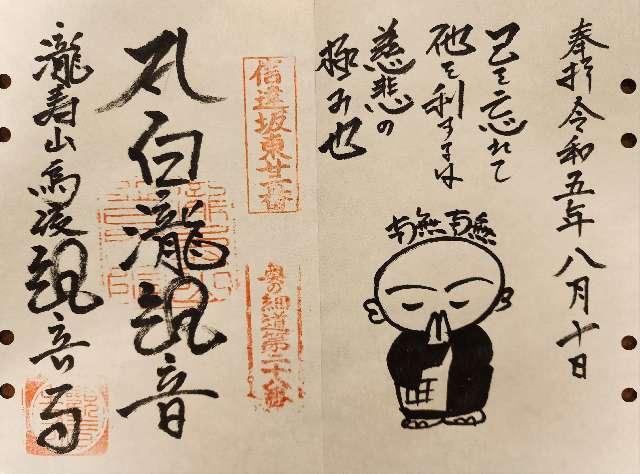 奉拝 令和五年八月十日
己を忘れて
他を利するは
慈悲の
極み也
南無南無
信達坂東廿一番
奥の細道第二十八番
白瀧観音
瀧寿山 馬凌観音寺